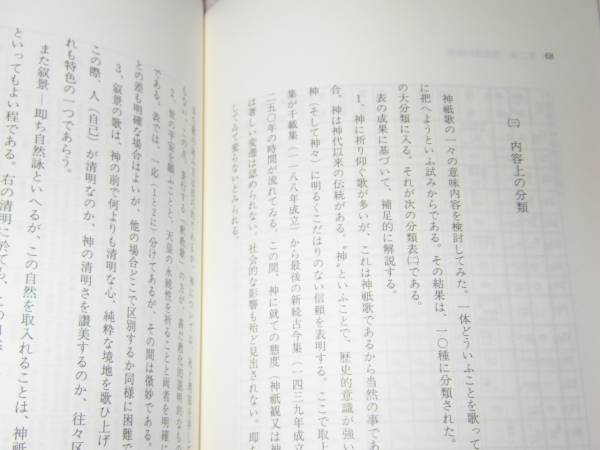 68
(三) 内容上の分類
神祇歌の一々の意味内容を検討してみた。一体どういふことを歌って
に把へようといふ試みからである。その結果は、一〇種に分類された。
の大分類に入る。それが次の分類表(二)である。
表の成果に基づいて、補足的に解説する。
1、神に祈り仰ぐ歌が多いが、これは神祇歌であるから当然の事であ
合、神は神代以来の伝統がある。〝神〟といふことで、歴史的意識が強い
神(そして神々)に明るくこだはりのない信頼を表明する。ここで取上
集が千載集(一一八八年成立)から最後の新続古今集(一四三九年成立
二五〇年の時間が流れてゐる。この間、神に就ての態度(神祇観又は神
は著しい変遷は認められない。社会的な影響も殆ど見出されない。即
してみて変らないとみられる。
2、他の平安を願ふことと、天皇の永続性を祈ることと両者を明確に
である。表では、一応(1と2に)分けてあるが、その間は微妙である。
3、叙景の歌は、神の前で何よりも清明な心、純粋な境地を歌ひ上げ
との差も明確な場合はよいが、他の場合どこで区別するか同様に困難で
この際、人(自己)が清明なのか、神の清明さを讃美するのか、往々区
れも特色の一つであらう。
また叙景―即ち自然詠といへるが、この自然を取入れることは、神祇
といってもよい程である。右の清明に於ても、この